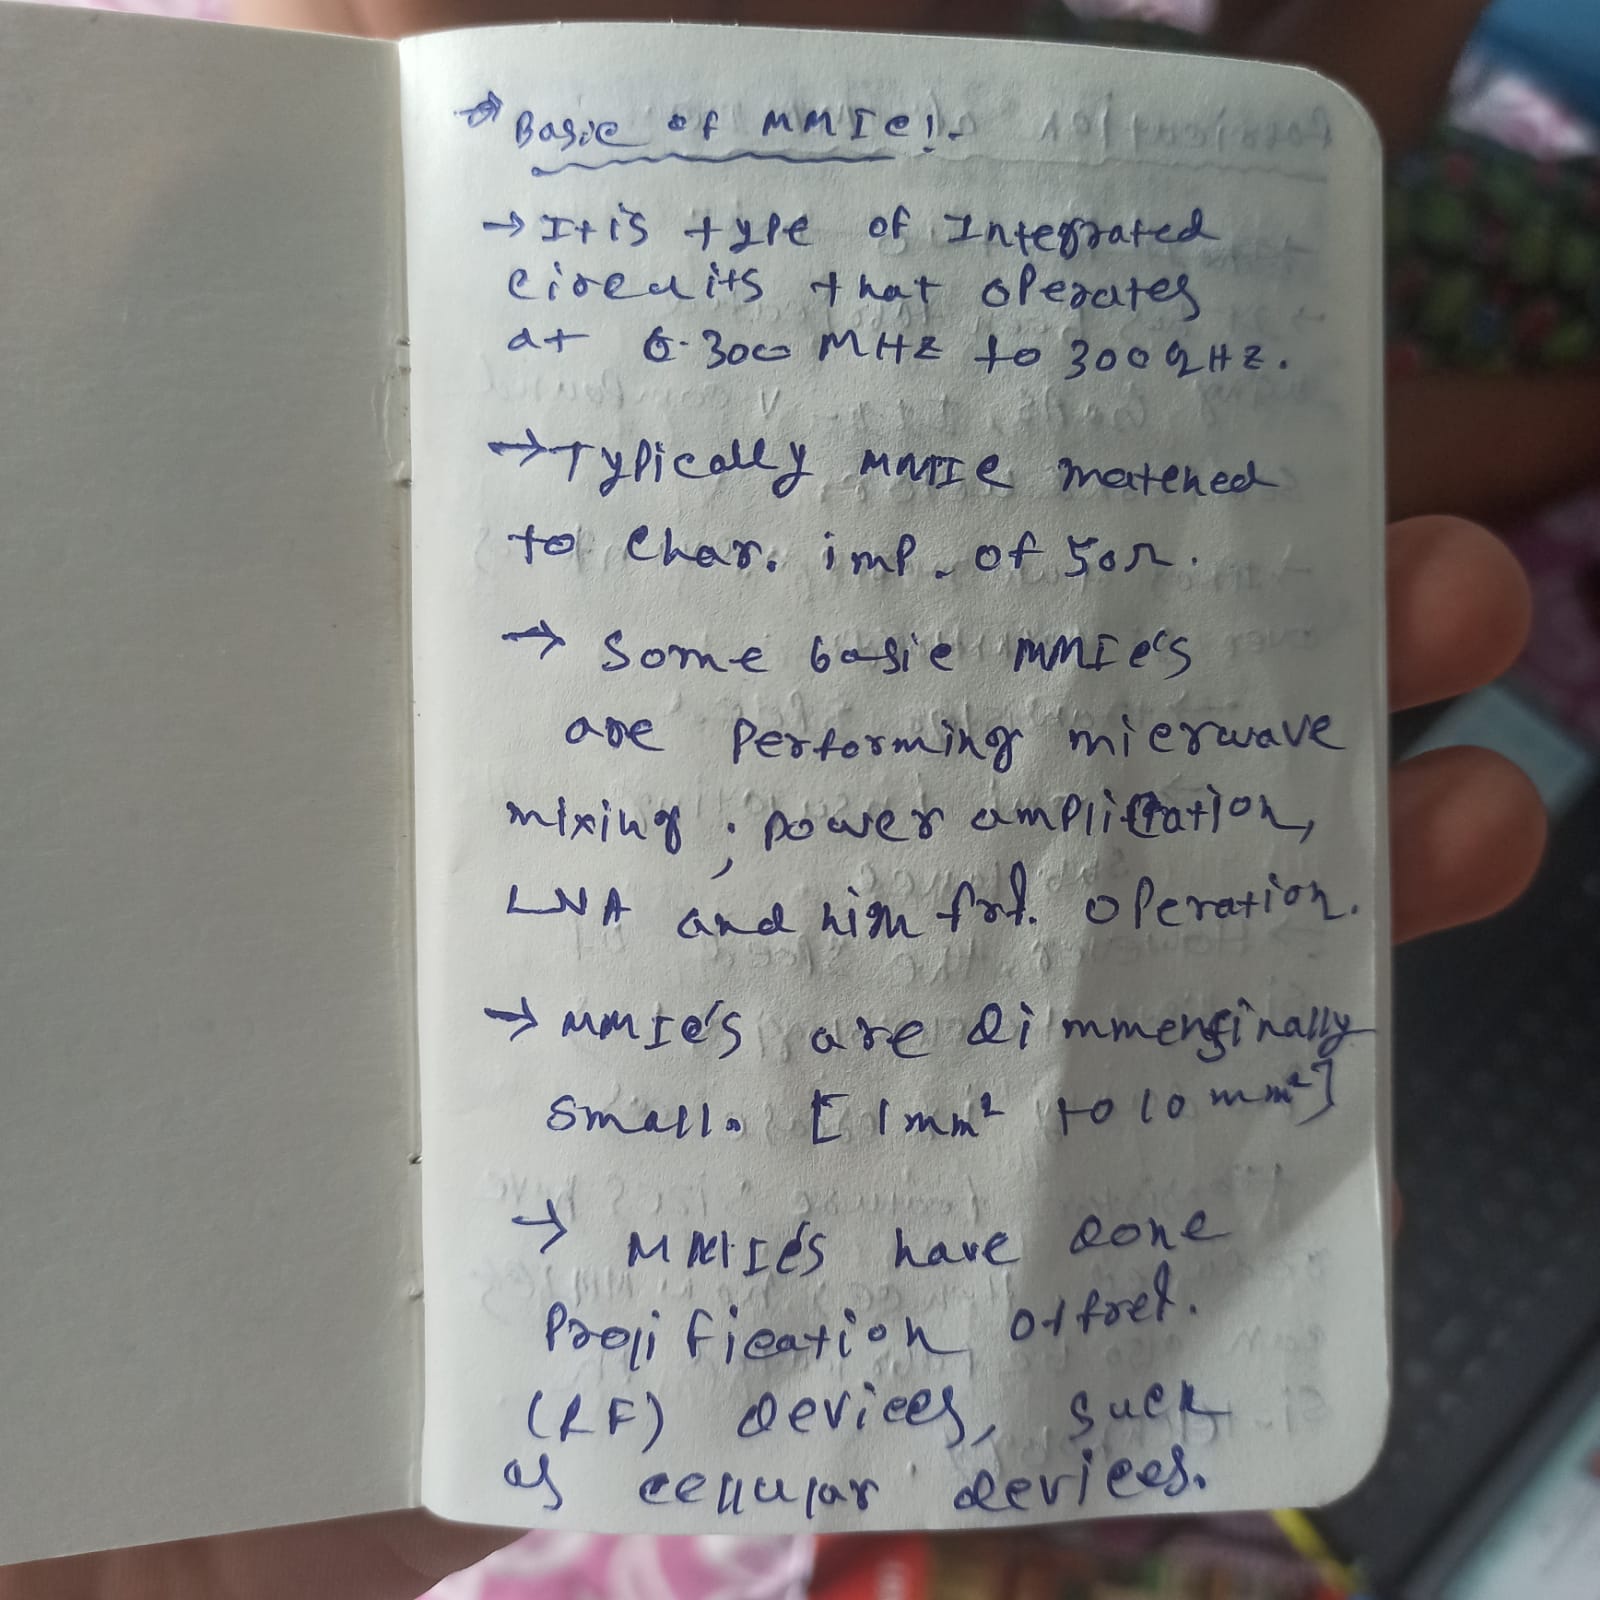 → Basic of MMIC:-
→ It is type of Integrated
circuits that operates
at 300 MHz to 300 GHz.
→ Typically MMIC matched
to Char. imp. of 50Ω.
→ Some basic MMIC's
are Performing micrwave
mixing, power amplification,
LNA and high frq. operation.
→ MMIC's are dimmensinally
small. [1mm² to 10 mm²]
→ MMIC's have done
Prolification of freq.
(RF) devices, such
as cellular devices.